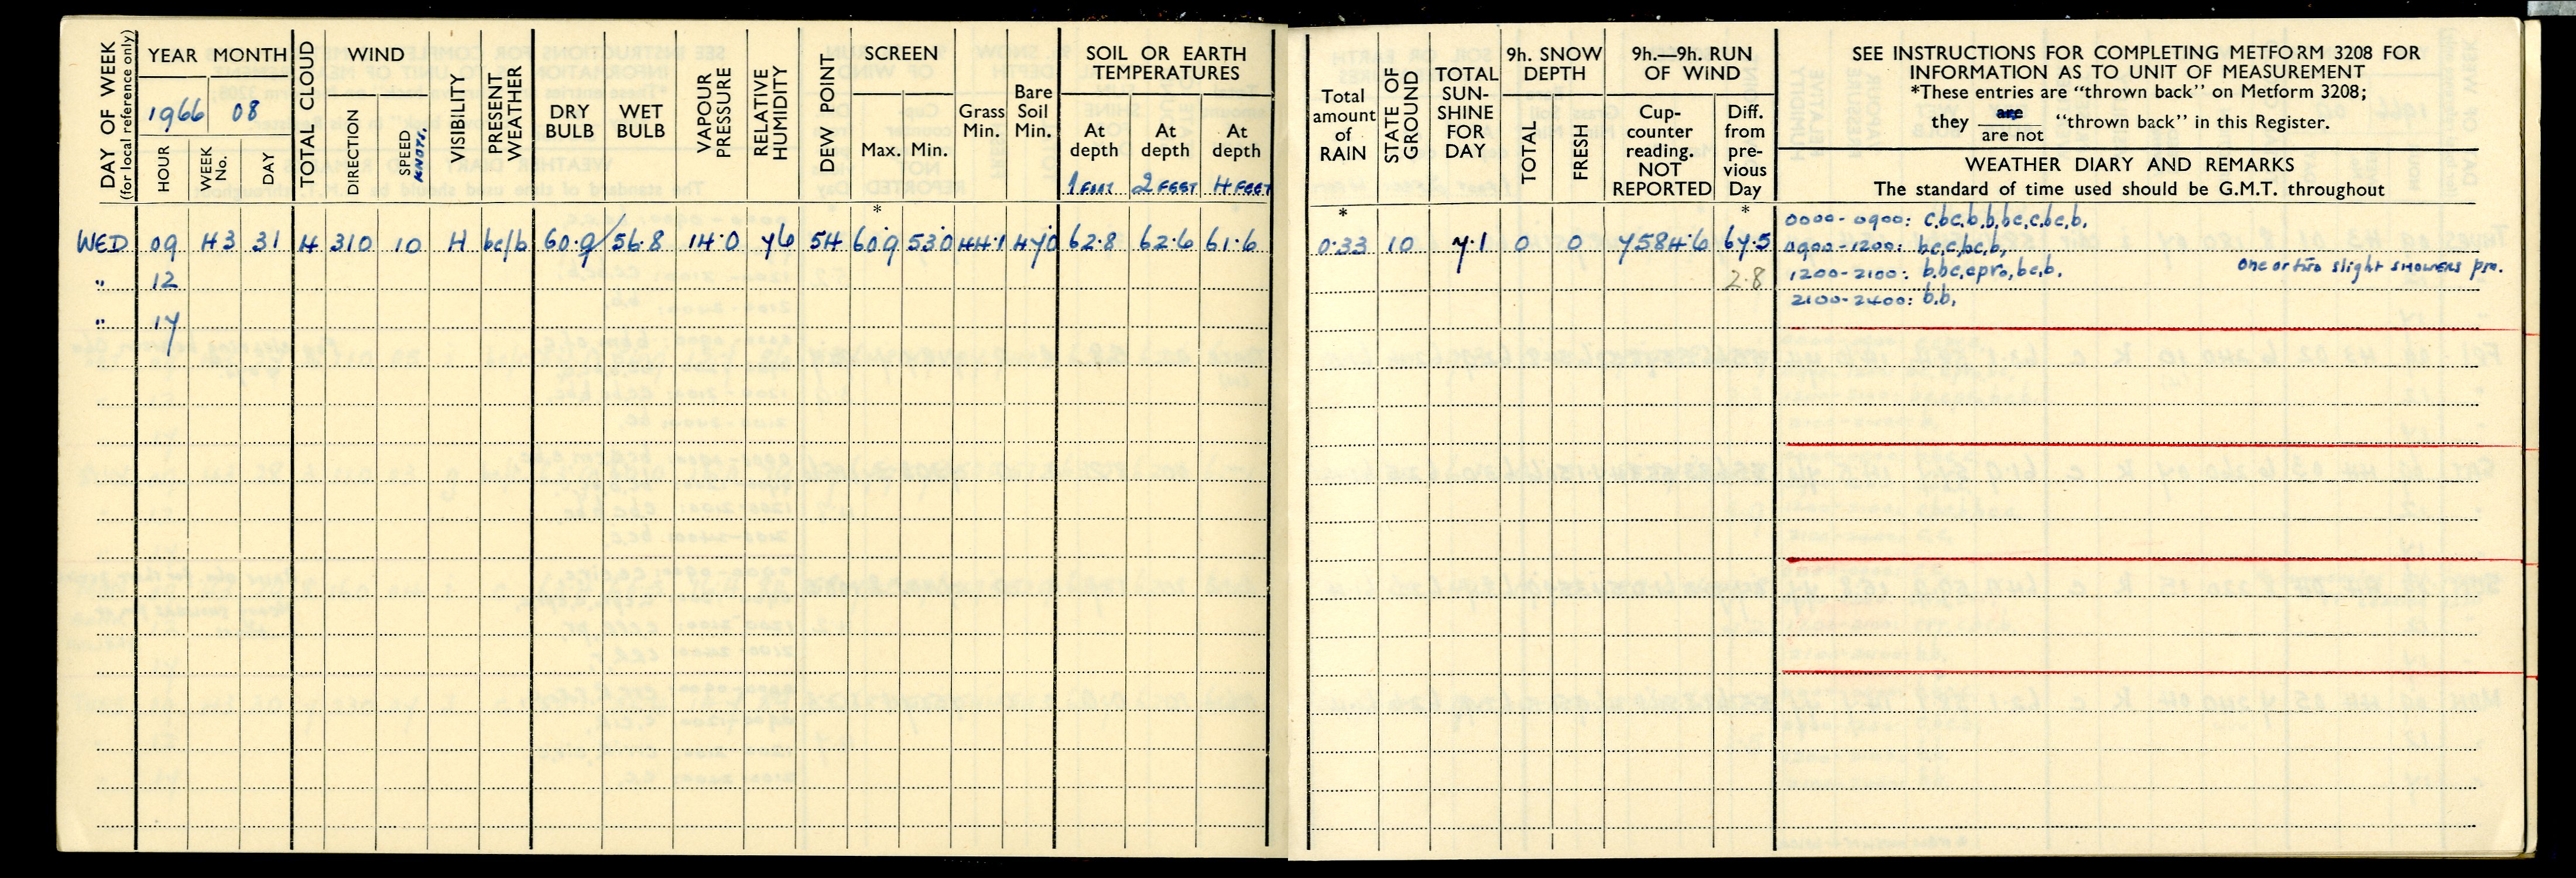 DAY OF WEEK
(for local reference only)
YEAR MONTH
1966 08
HOUR
WEEK No.
DAY
TOTAL CLOUD
WIND
DIRECTION
SPEED KNOTS.
VISIBILITY
PRESENT WEATHER
DRY BULB
WET BULB
VAPOUR PRESSURE
RELATIVE HUMIDITY
DEW POINT
SCREEN
Max. Min.
Grass Min.
Bare Soil Min.
SOIL OR EARTH
TEMPERATURES
At depth At depth At depth
1 FEET 2 FEET 4 FEET
Total amount of RAIN
STATE OF GROUND
TOTAL SUN-SHINE FOR DAY
9h. SNOW DEPTH
TOTAL
FRESH
9h.—9h. RUN OF WIND
Cup-counter reading. NOT REPORTED
Diff. from pre-vious Day
SEE INSTRUCTIONS FOR COMPLETING METFORM 3208 FOR
INFORMATION AS TO UNIT OF MEASUREMENT
*These entries are "thrown back" on Metform 3208;
they are / are not "thrown back" in this Register.
WEATHER DIARY AND REMARKS
The standard of time used should be G.M.T. throughout
* * *
WED 09 43 31 4 310 10 4 bc/b 60.9 56.8 14.0 76 54 60.9 53.0 44.1 47.0 62.8 62.6 61.6 0.33 10 7.1 0 0 7584.6 67.5
" 12 2.8
" 17
0000-0900: c,bc,b,b,bc,c,bc,b.
0900-1200: bc,c,bc,b,
1200-2100: b,bc,cpro,bc,b. One or two slight SHOWERS pm.
2100-2400: b,b,